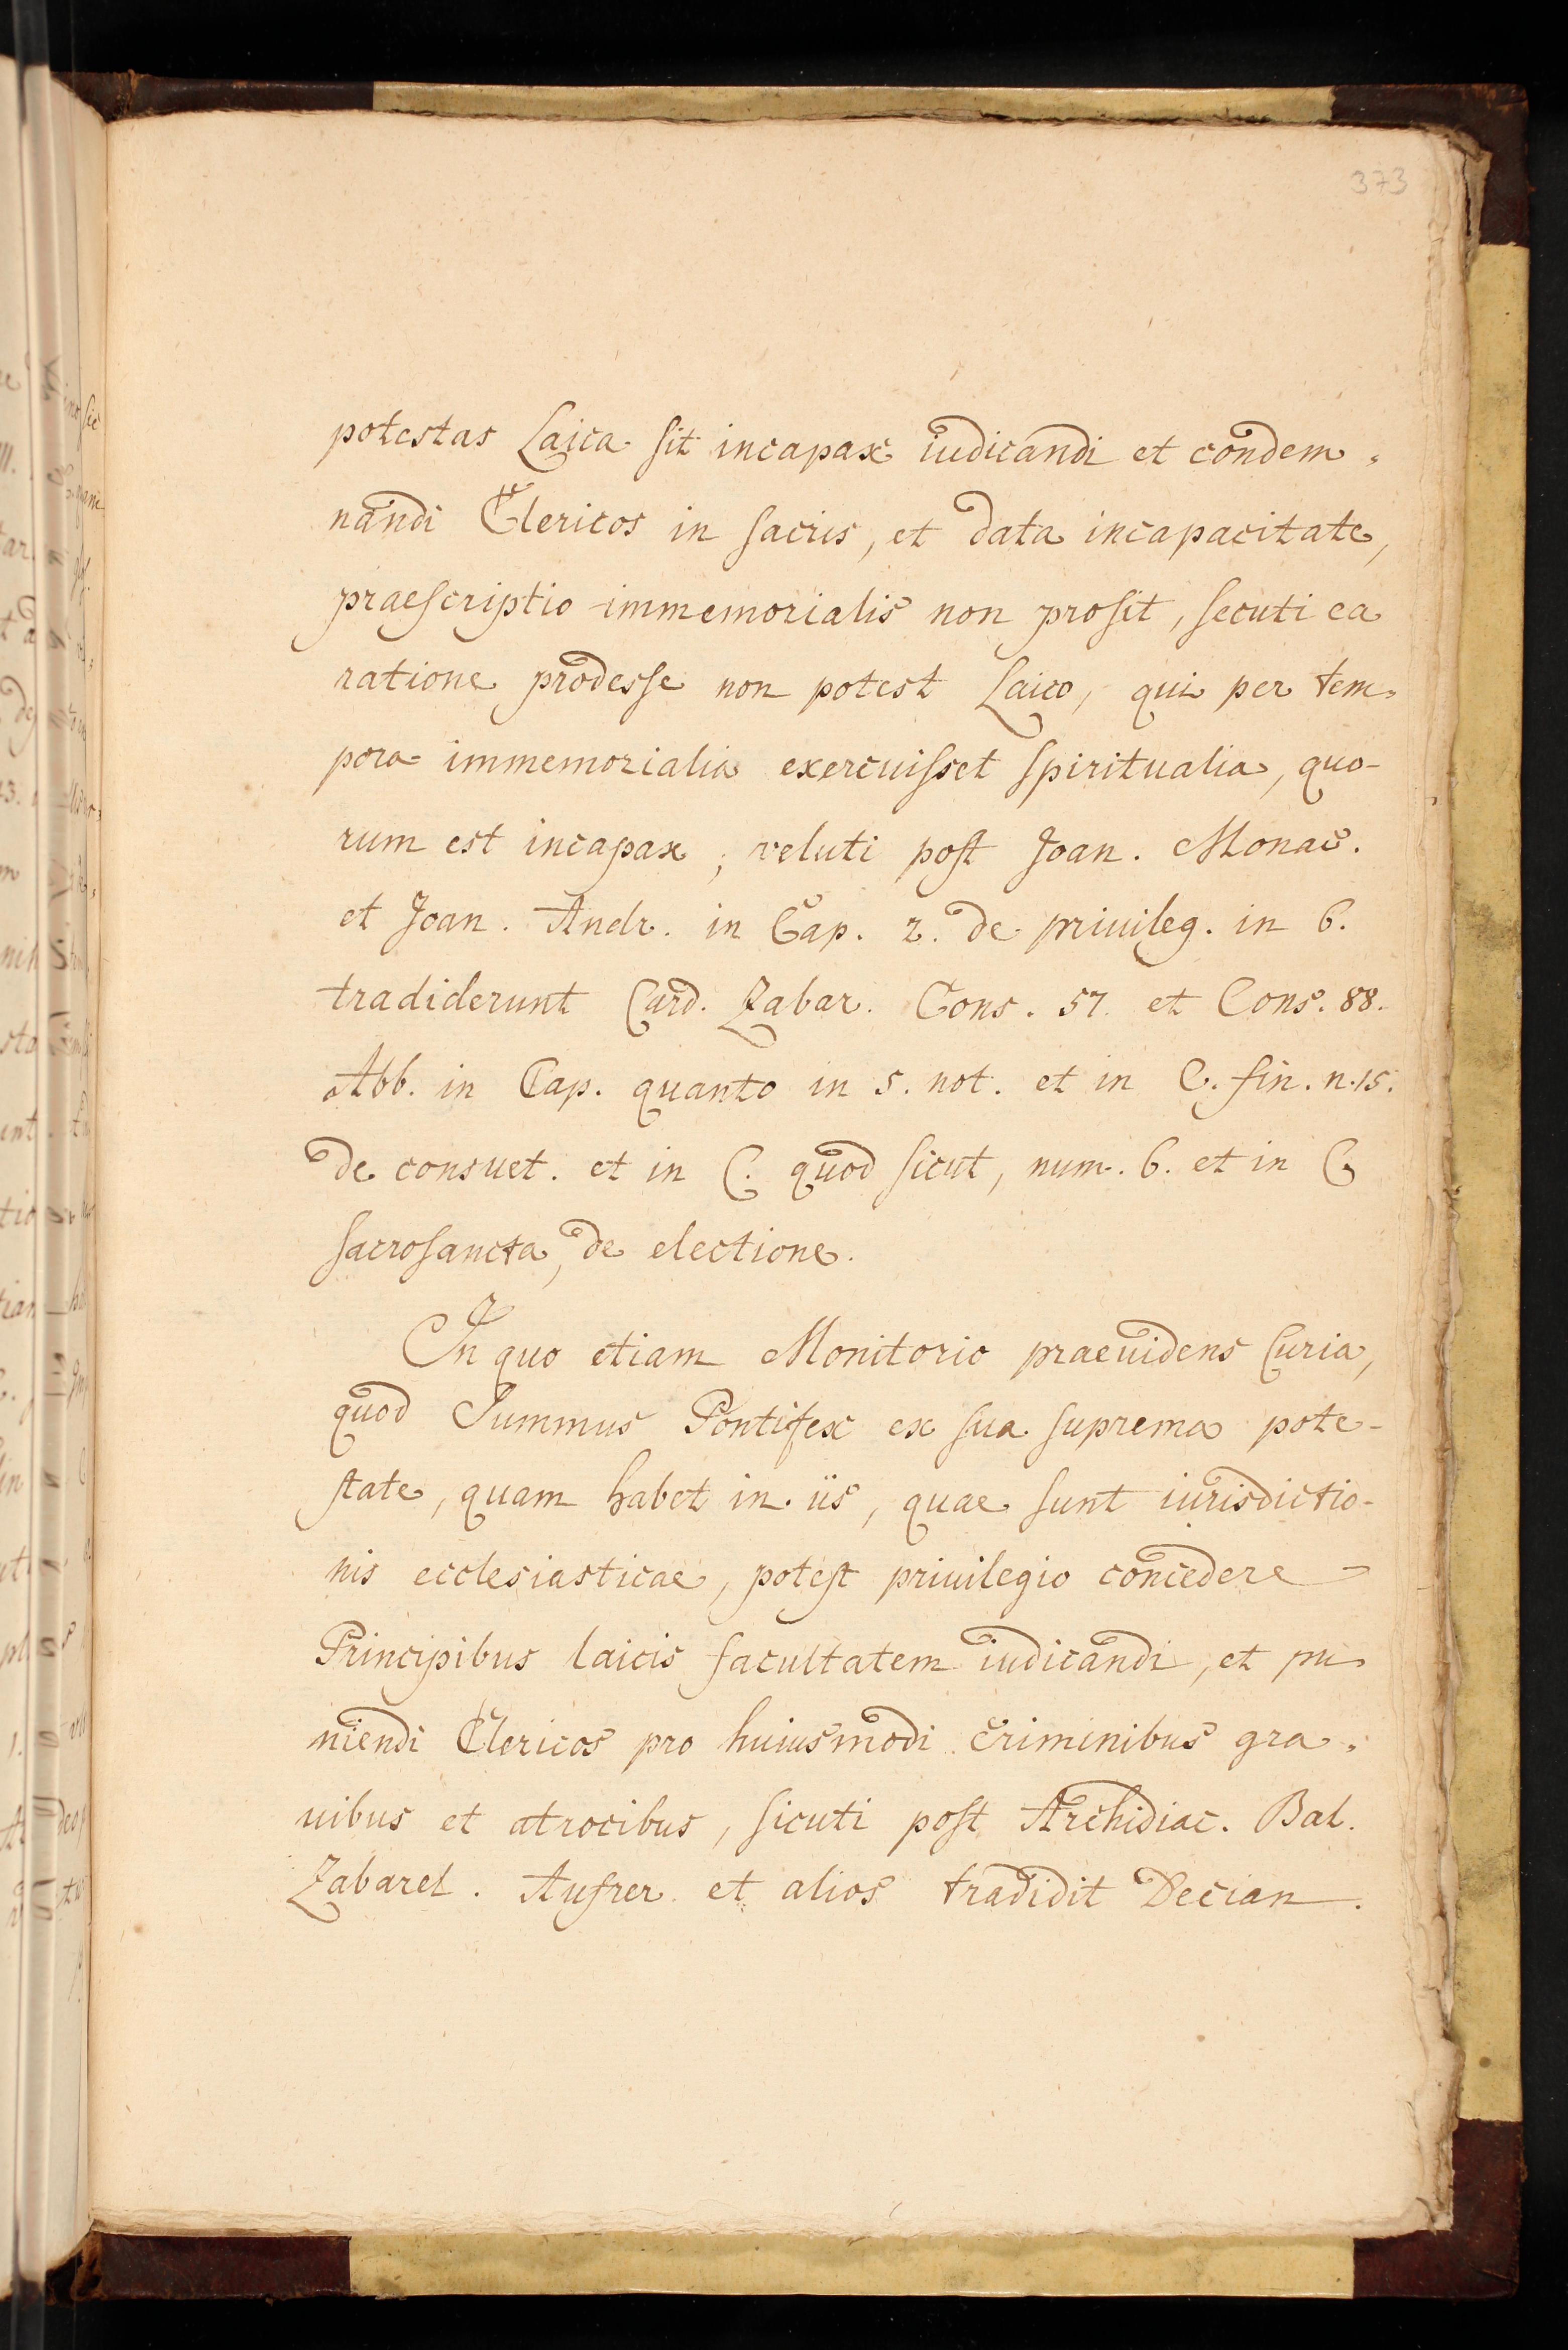 373
potestas Laica sit incapax iudicandi et condem-
nandi Clericos in sacris, et data incapacitate,
praescriptio immemorialis non prosit, secuti ea
ratione prodesse non potest Laico, qui per tem-
pora immemorialia exercuisset spiritualia, quo-
rum est incapax; veluti post Joan. Monac.
et Joan. Andr. in Cap. 2. de privileg. in 6.
tradiderunt Card. Zabar. Cons. 57. et Cons. 88.
Abb. in Cap. quanto in 5. not. et in C. fin. n. 15.
de consuet. et in C. quod sicut, num. 6. et in C.
sacrosancta, de electione.
In quo etiam Monitorio praeuidens Curia,
quod Summus Pontifex ex sua suprema pote-
state, quam habet in iis, quae sunt iurisdictio-
nis ecclesiasticae, potest priuilegio concedere
Principibus laicis facultatem iudicandi, et pu-
niendi Clericos pro huiusmodi criminibus gra-
uibus et atrocibus, sicuti post Archidiac. Bal.
Zabarel. Aufrer. et alios tradidit Decian.